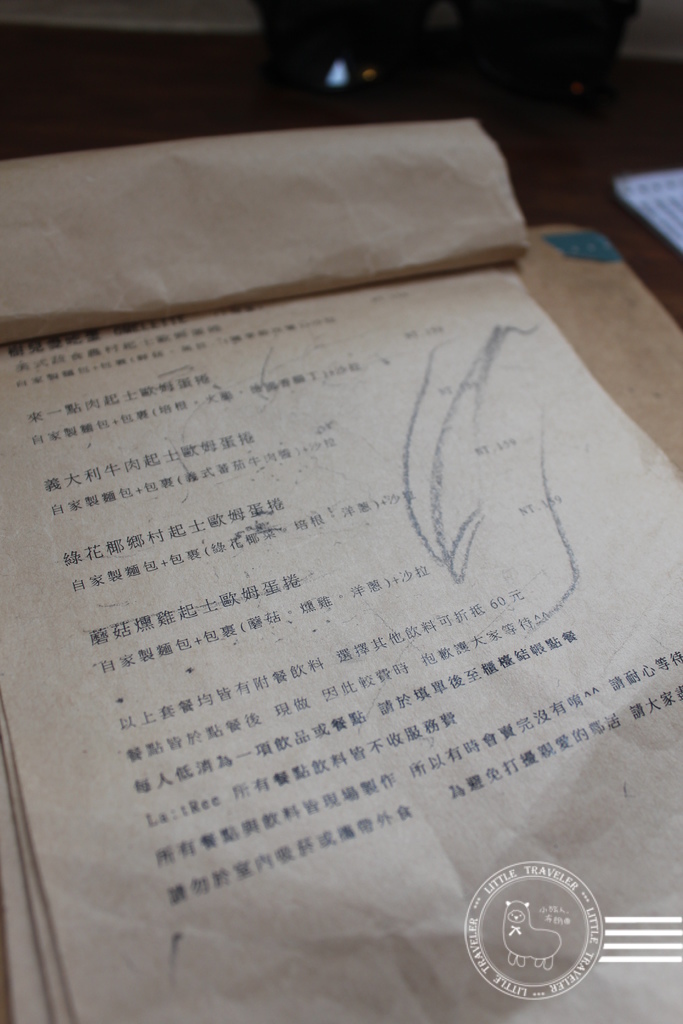 來一點肉起士歐姆蛋捲
自家製麵包+包裹(培根、火腿、德國香腸丁)+沙拉
義大利牛肉起士歐姆蛋捲
自家製麵包+包裹(義式番茄牛肉醬)+沙拉
NT.159
綠花椰鄉村起士歐姆蛋捲
自家製麵包+包裹(綠花椰菜、培根、洋蔥)+沙拉
NT.159
蘑菇燻雞起士歐姆蛋捲
自家製麵包+包裹(蘑菇、燻雞、洋蔥)+沙拉
以上套餐均皆有附餐飲料 選擇其他飲料可折抵 60 元
餐點皆於點餐後 現做 因此較費時 抱歉讓大家等待^^
每人低消為一項飲品或餐點 請於填單後至櫃檯結帳點餐
La:tRee 所有餐點飲料皆不收服務費
所有餐點與飲料皆現場製作 所以有時會賣完沒有唷^^ 請耐心等待
請勿於室內吸菸或攜帶外食 為避免打擾親愛的鄰居 請大家
LITTLE TRAVELER
LITTLE TRAVELER
LITTLE TRAVELER